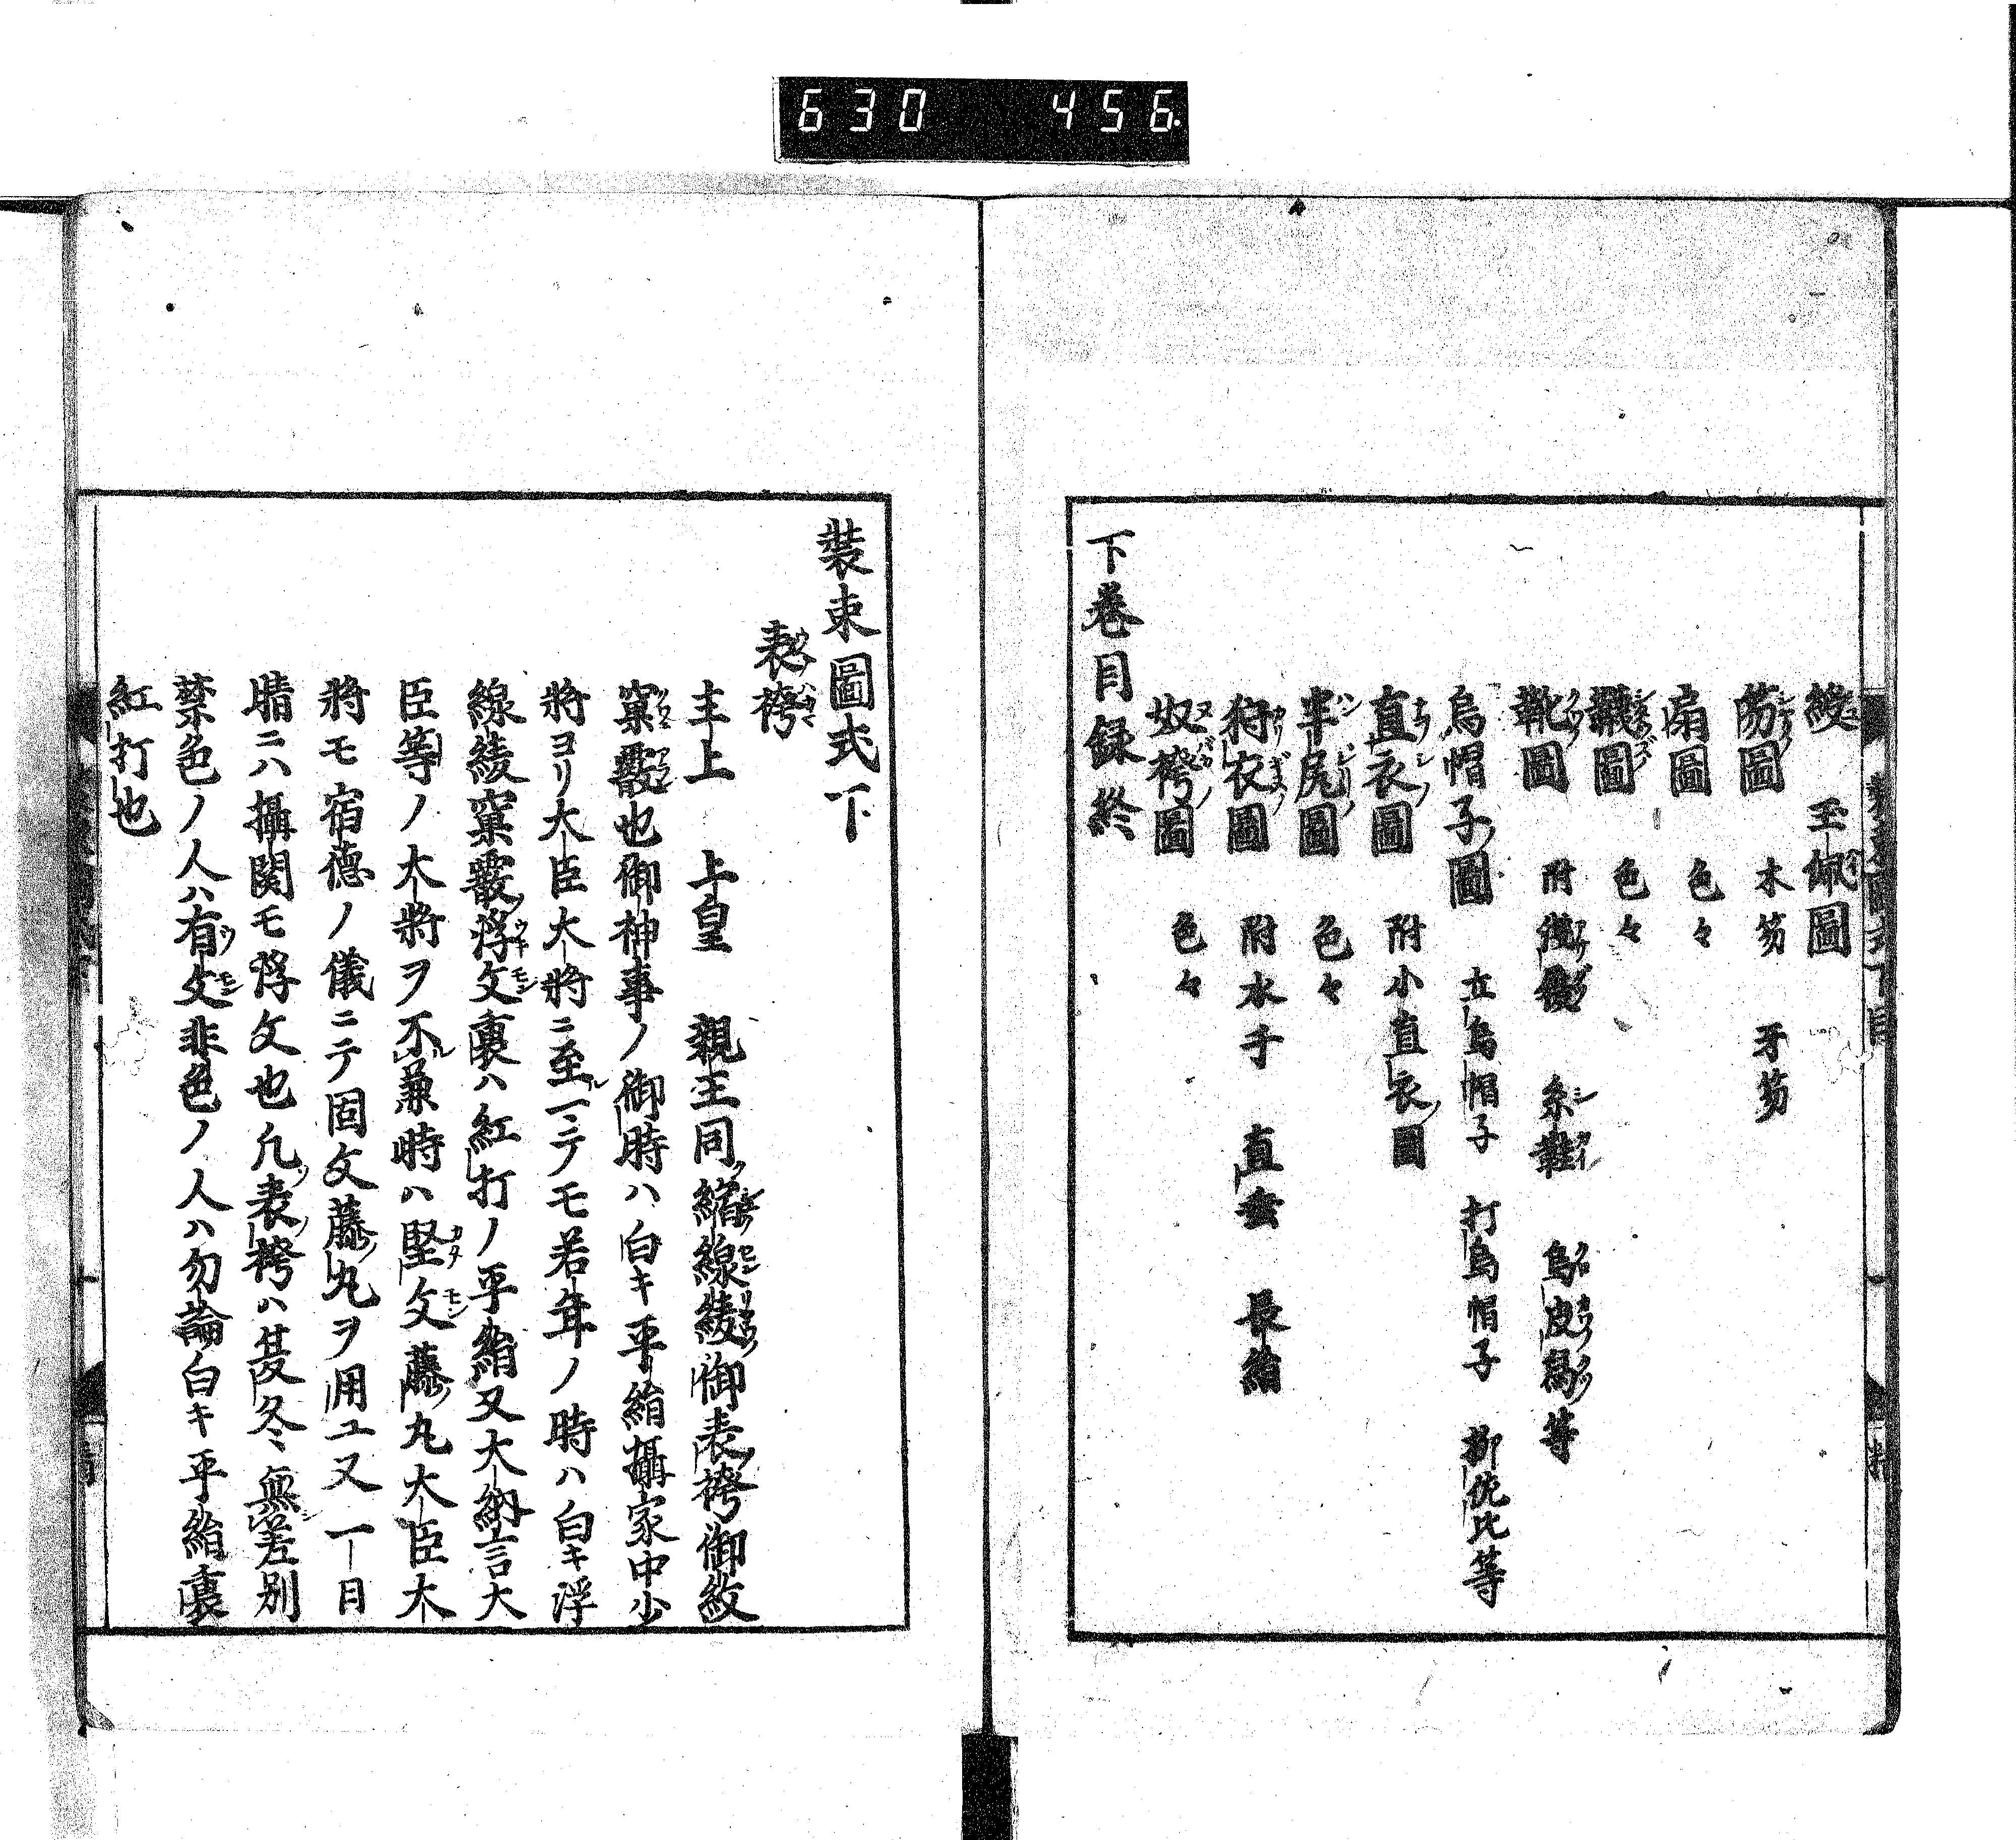 630 456
綬 玉佩圖
笏圖 木笏 牙笏
扇圖 色々
韈圖 色々
靴圖 附 糸鞋 烏皮舄等
烏帽子圖 立烏帽子 打烏帽子 柳佐比等
直衣圖 附小直衣圖
半尻圖 色々
狩衣圖 附水干 直垂 長絹
奴袴圖 色々
下卷目録終
裝束圖式下
表袴
主上 上皇 親王同縮線綾御表袴御紋
窠霰也御神事ノ御時ハ白キ平絹攝家中少
將ヨリ大臣大將ニ至ルマテモ若年ノ時ハ白キ浮
線綾窠霰浮文裏ハ紅打ノ平絹又大納言大
臣等ノ大將ヲ不兼時ハ堅文藤丸大臣大
將モ宿德ノ儀ニテ固文藤丸ヲ用ユ又一日
晴ニハ攝関モ浮文也凢表袴ハ夏冬無差別
禁色ノ人ハ有文非色ノ人ハ勿論白キ平絹裏
紅打也